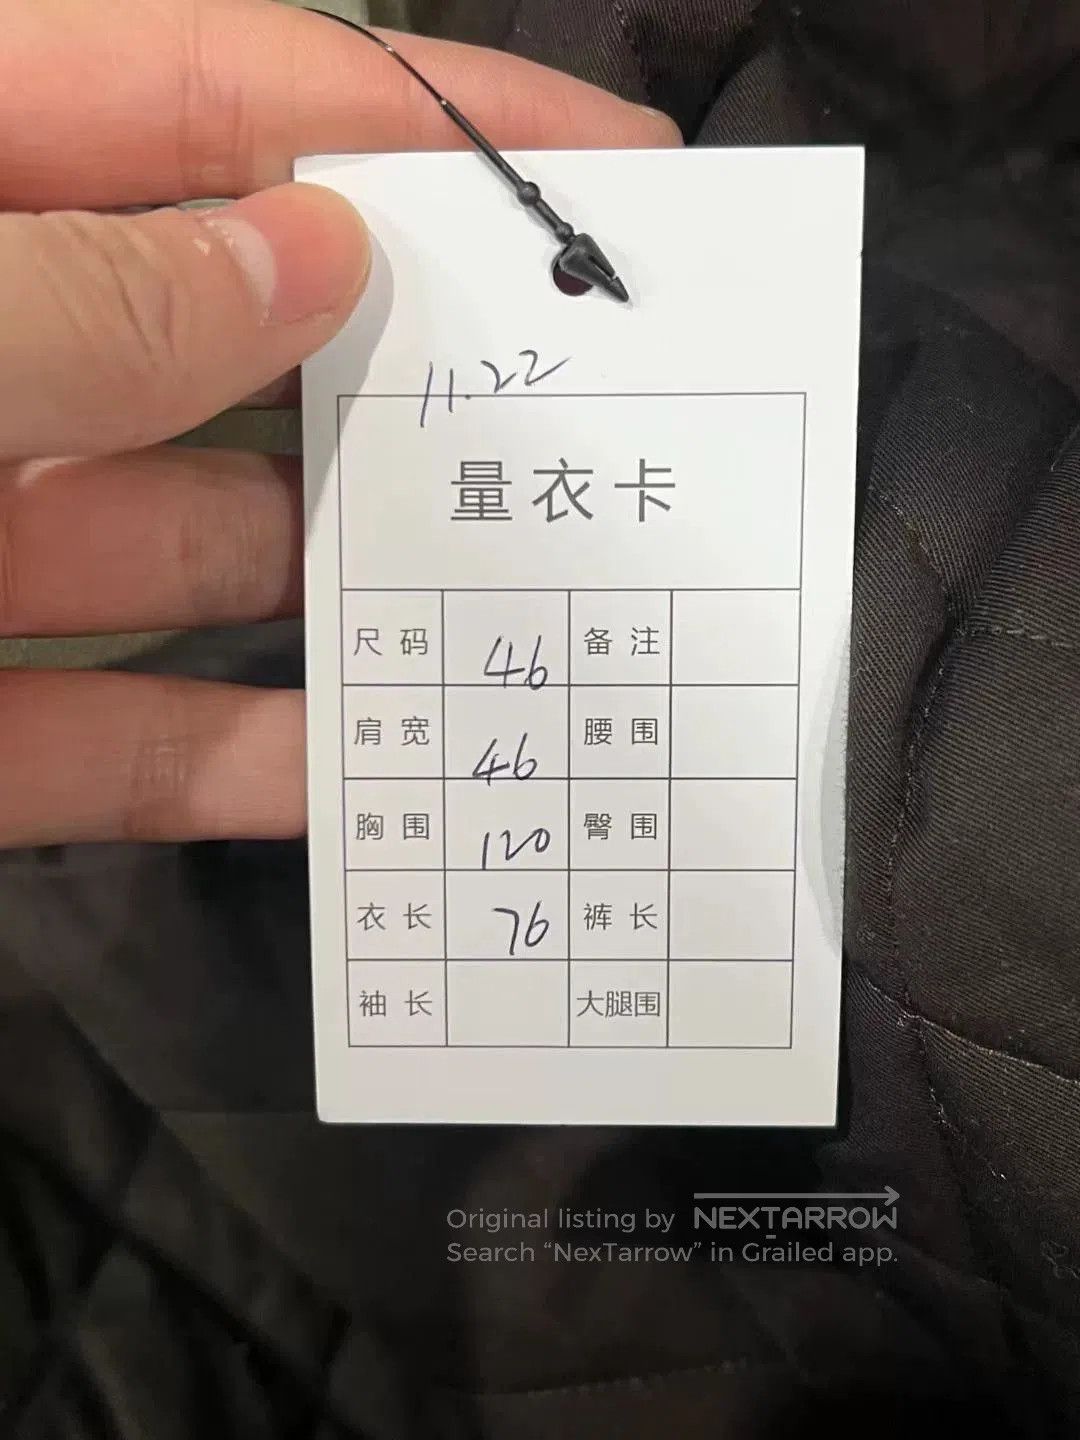 11.22
量衣卡
尺码 46 备注
肩宽 46 腰围
胸围 120 臀围
衣长 76 裤长
袖长 大腿围
Original listing by NEXTARROW
Search “NexTarrow” in Grailed app.